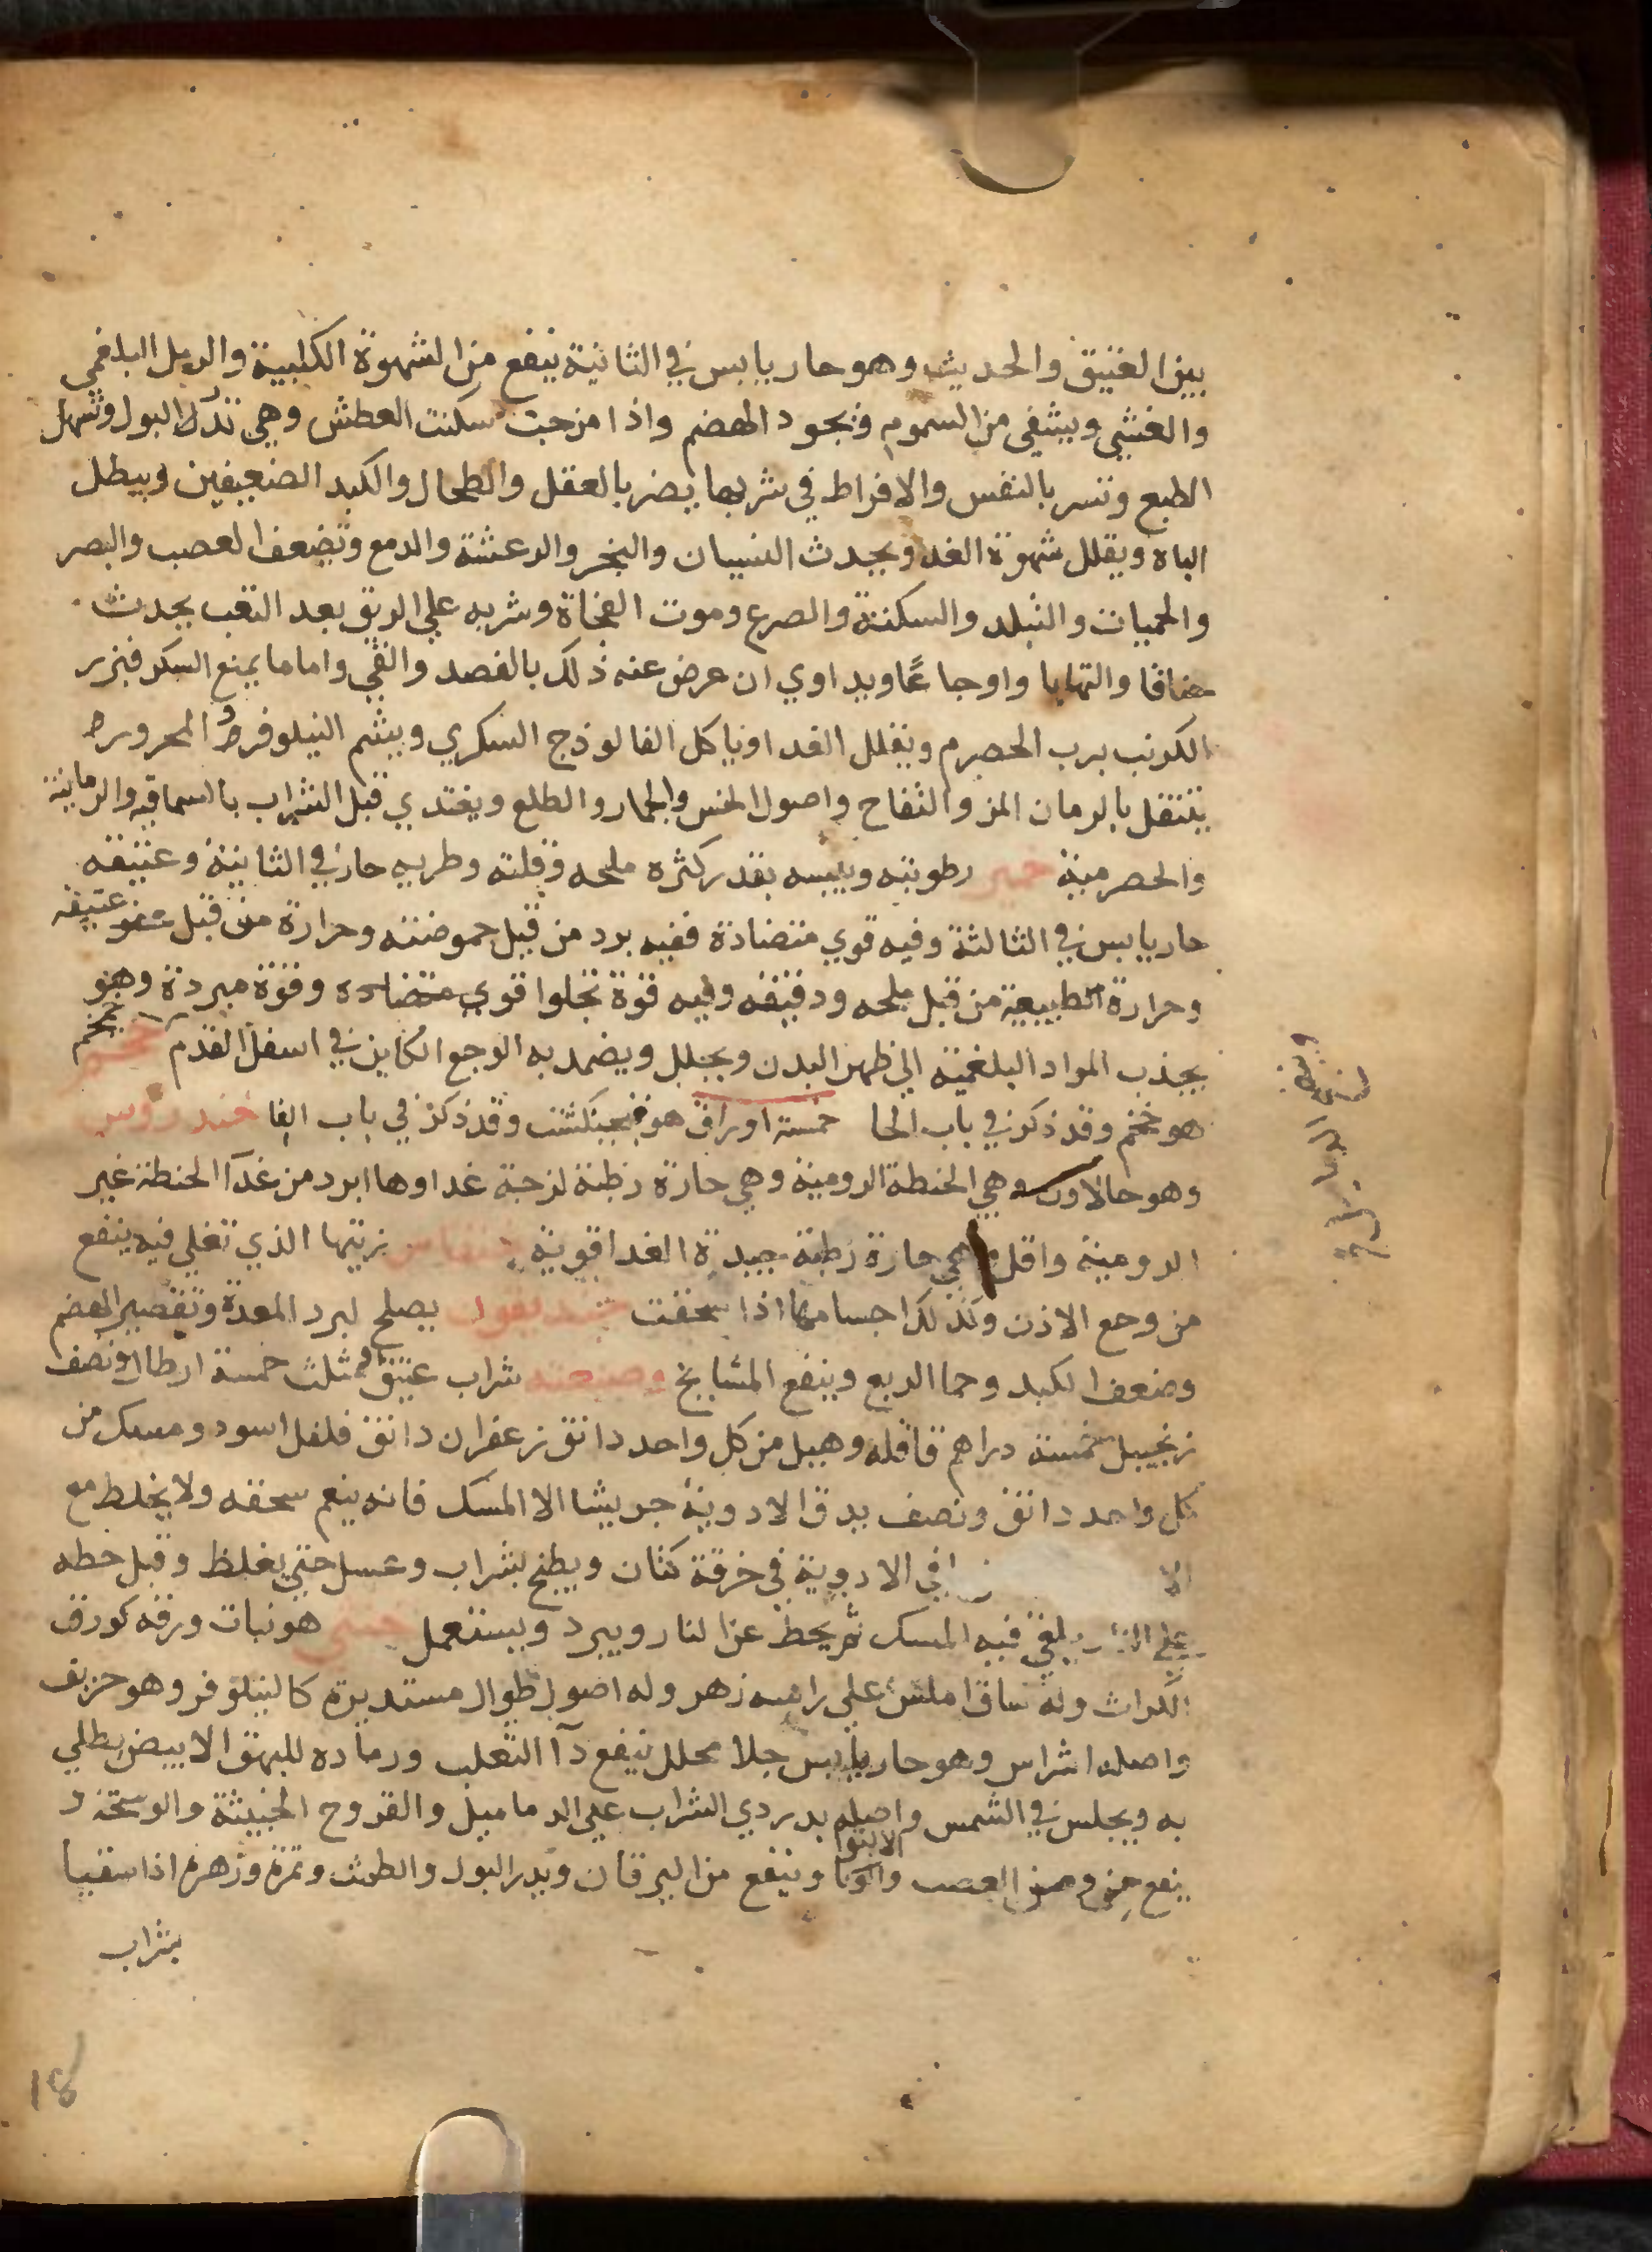 بين العتيق والحديث وهو حار يابس في الثانية ينفع من الشهوة الكلبية والدبل البلغمي
والغشي ويشفي من السموم ويجود الهضم واذا مزجت سكنت العطش وهي تدر البول وتسهل
الطبع وتسر بالنفس والافراط في شربها يضر بالعقل والطحال والكبد الضعيفين ويبطل
الباه ويقلل شهوة الغدا ويحدث النسيان والبخر والرعشة والدمع وتضعف العصب والبصر
والحميات والتبلد والسكتة والصرع وموت الفجاة وشربه علي الريق بعد التعب يحدث
خناقا والتهابا واوجاعًا ويداوي ان عرض عنه ذلك بالفصد والقي واما ما يمنع السكر فبزر
الكرنب برب الحصرم ويقلل الغدا وياكل الفالوذج السكري ويشم النيلوفر والمحرور
يتنقل بالرمان المز والتفاح واصول الخس والجمار والطلع ويغتدي قبل الشراب بالسماقيه والرمانية
والحصرمية خمير رطوبته ويبسه بقدر كثره ملحه وقلته وطريه حار في الثانية وعتيقه
حار يابس في الثالثة وفيه قوي متضادة ففيه برد من قبل حموضته وحرارة من قبل عفو عتيقه
وحرارة الطبيعية من قبل ملحه ودقيقه وفيه قوة تجلوا قوي متضاده وقوة مبردة وهو
يجذب المواد البلغمية الي ظهر البدن ويحلل ويضمد به الوجع الكاين في اسفل القدم خمخم
هو خمخم وقد ذكر في باب الحا خمسة اوراق هو فنجنكشت وقد ذكر في باب الفا خندروس
وهو حالاون وهي الحنطة الرومية وهي حارة رطبة لزجة غداوها ابرد من غدآ الحنطة غير
الرومية واقل هي حارة رطبة جيدة الغدا قوية خنفاس زيتها الذي تغلي فيه ينفع
من وجع الاذن وكذلك اجسامها اذا سحقت خنديقون يصلح لبرد المعدة وتقصير الهضم
وضعف الكبد وحما الربع وينفع المشايخ وصنعته شراب عتيق ومثلث خمسة ارطال ونصف
زنجبيل خمسة دراهم قاقله وهيل من كل واحد دانق زعفران دانق فلفل اسود ومسك من
كل واحد دانق ونصف يدق الادوية جريشا الا المسك فانه ينعم سحقه ولا يخلط مع
الادوية في خرقة كتان ويطبخ بشراب وعسل حتي يغلظ وقبل حطه
علي النار يلقي فيه المسك ثم يحط عن النار ويبرد ويستعمل خنثي هو نبات ورقه كورق
الكراث وله ساق املس علي راسه زهر وله اصول طوال مستديرة كالنيلوفر وهو حريف
واصله اشراس وهو حار يابس جلا محلل ينفع دآ الثعلب ورماده للبهق الابيض يطلي
به ويجلس في الشمس واصله بدردي الشراب علي الدماميل والقروح الخبيثة والوسخة و
ينفع من العصب وينفع من اليرقان ويدر البول والطمث وثمرة وزهرة اذا سقيا
بشراب
18